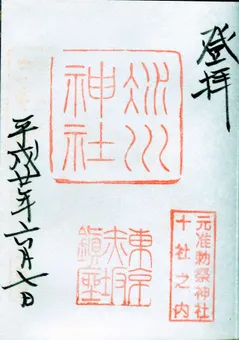 登拝
氷川
神社
元准勅祭神社
十社之内
東京
赤坂
鎮座
平成廿年六月七日